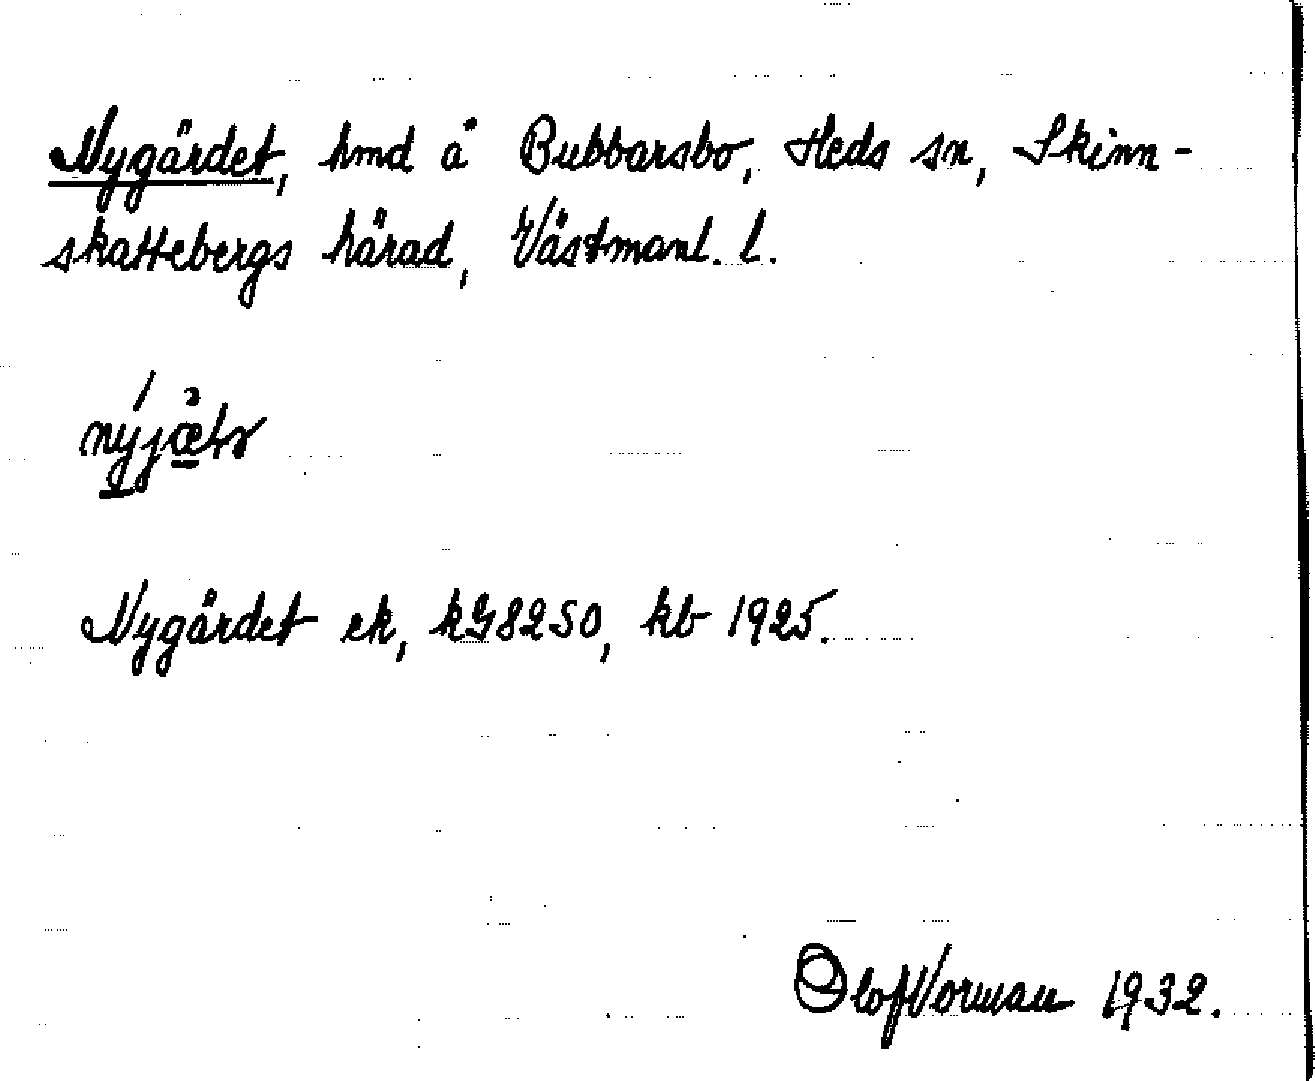 Nygärdet, hmd å Bubbarsbo, Heds sn, Skinn-
skattebergs härad, Västmanl. l.
Nygärdet ek, kG8250, kb 1925.
Olof Vorman 1932.